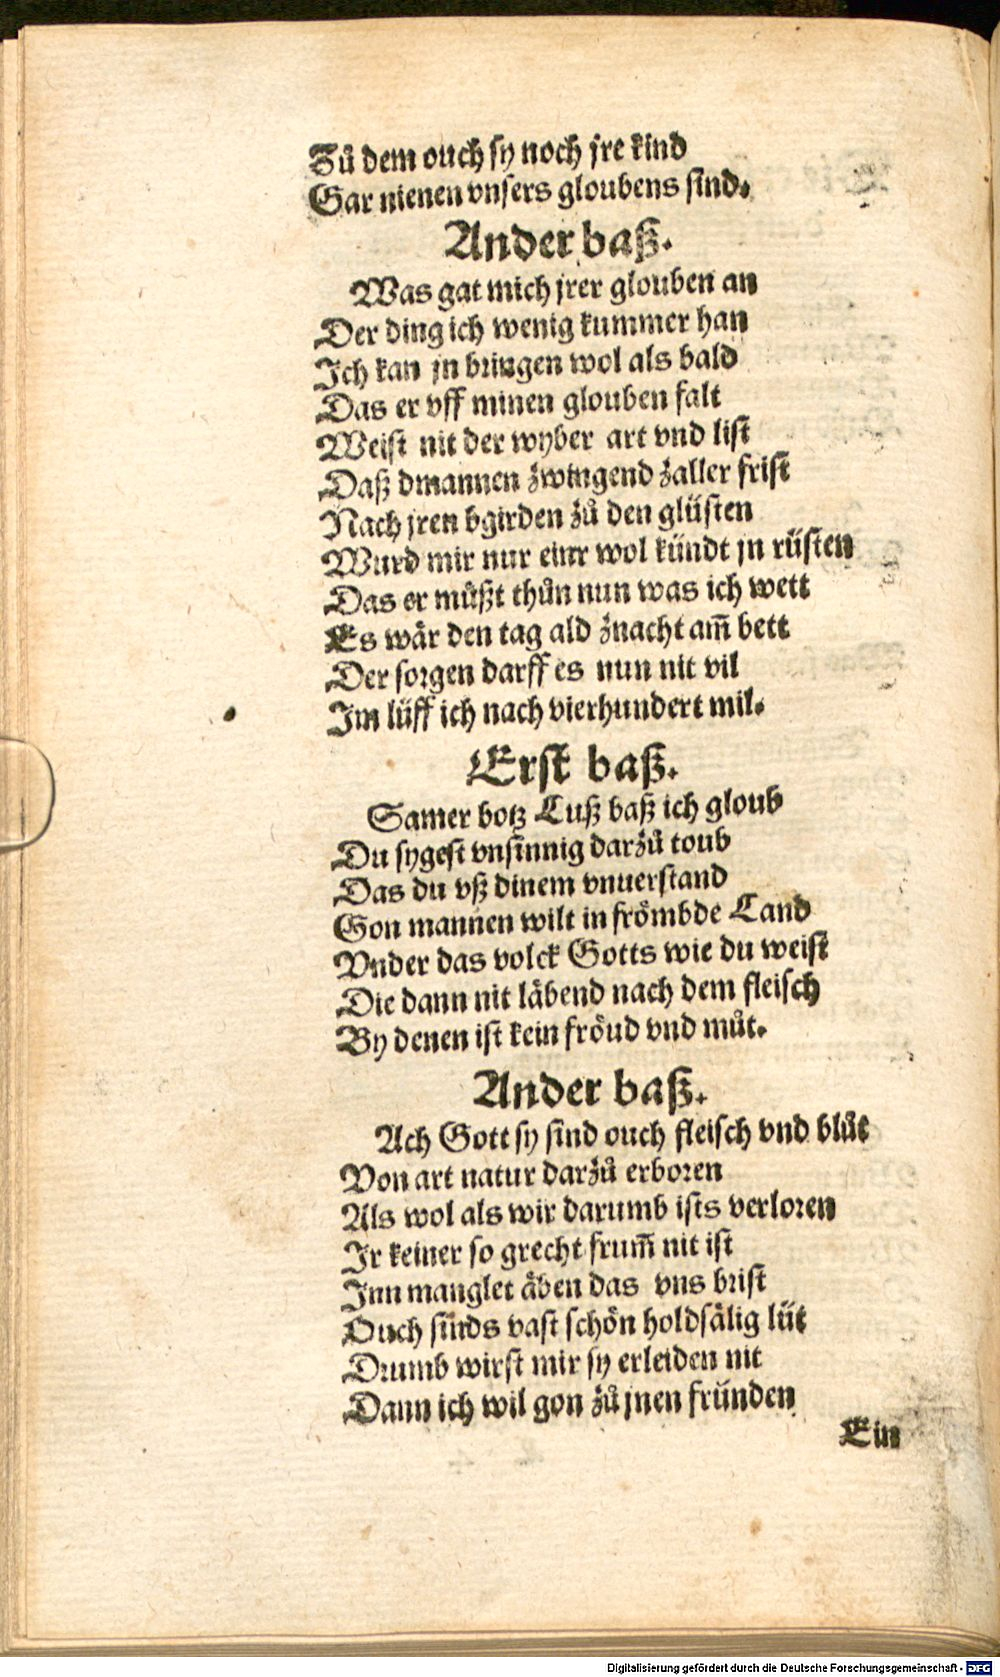 Zů dem ouch sy noch jre kind
Gar nienen vnsers gloubens sind.
Ander baß.
Was gat mich jrer glouben an
Der ding ich wenig kummer han
Ich kan jn bringen wol als bald
Das er vff minen glouben falt
Weist nit der wyber art vnd list
Daß dmannen zwingend zaller frist
Nach jren bgirden zů den glüsten
Wurd mir nur einr wol kündt jn rüsten
Das er müßt thůn nun was ich wett
Es wär den tag ald znacht am̄ bett
Der sorgen darff es nun nit vil
Im lüff ich nach vierhundert mil.
Erst baß.
Samer botz Luß baß ich gloub
Du sygest vnsinnig darzů toub
Das du vß dinem vnuerstand
Gon mannen wilt in frömbde Land
Vnder das volck Gotts wie du weist
Die dann nit läbend nach dem fleisch
By denen ist kein fröud vnd můt.
Ander baß.
Ach Gott sy sind ouch fleisch vnd blůt
Von art natur darzů erboren
Als wol als wir darumb ists verloren
Ir keiner so grecht frum̄ nit ist
Inn manglet äben das vns brist
Ouch sinds vast schön holdsälig lüt
Drumb wirst mir sy erleiden nit
Dann ich wil gon zů jnen fründen
Ein
Digitalisierung gefördert durch die Deutsche Forschungsgemeinschaft - DFG